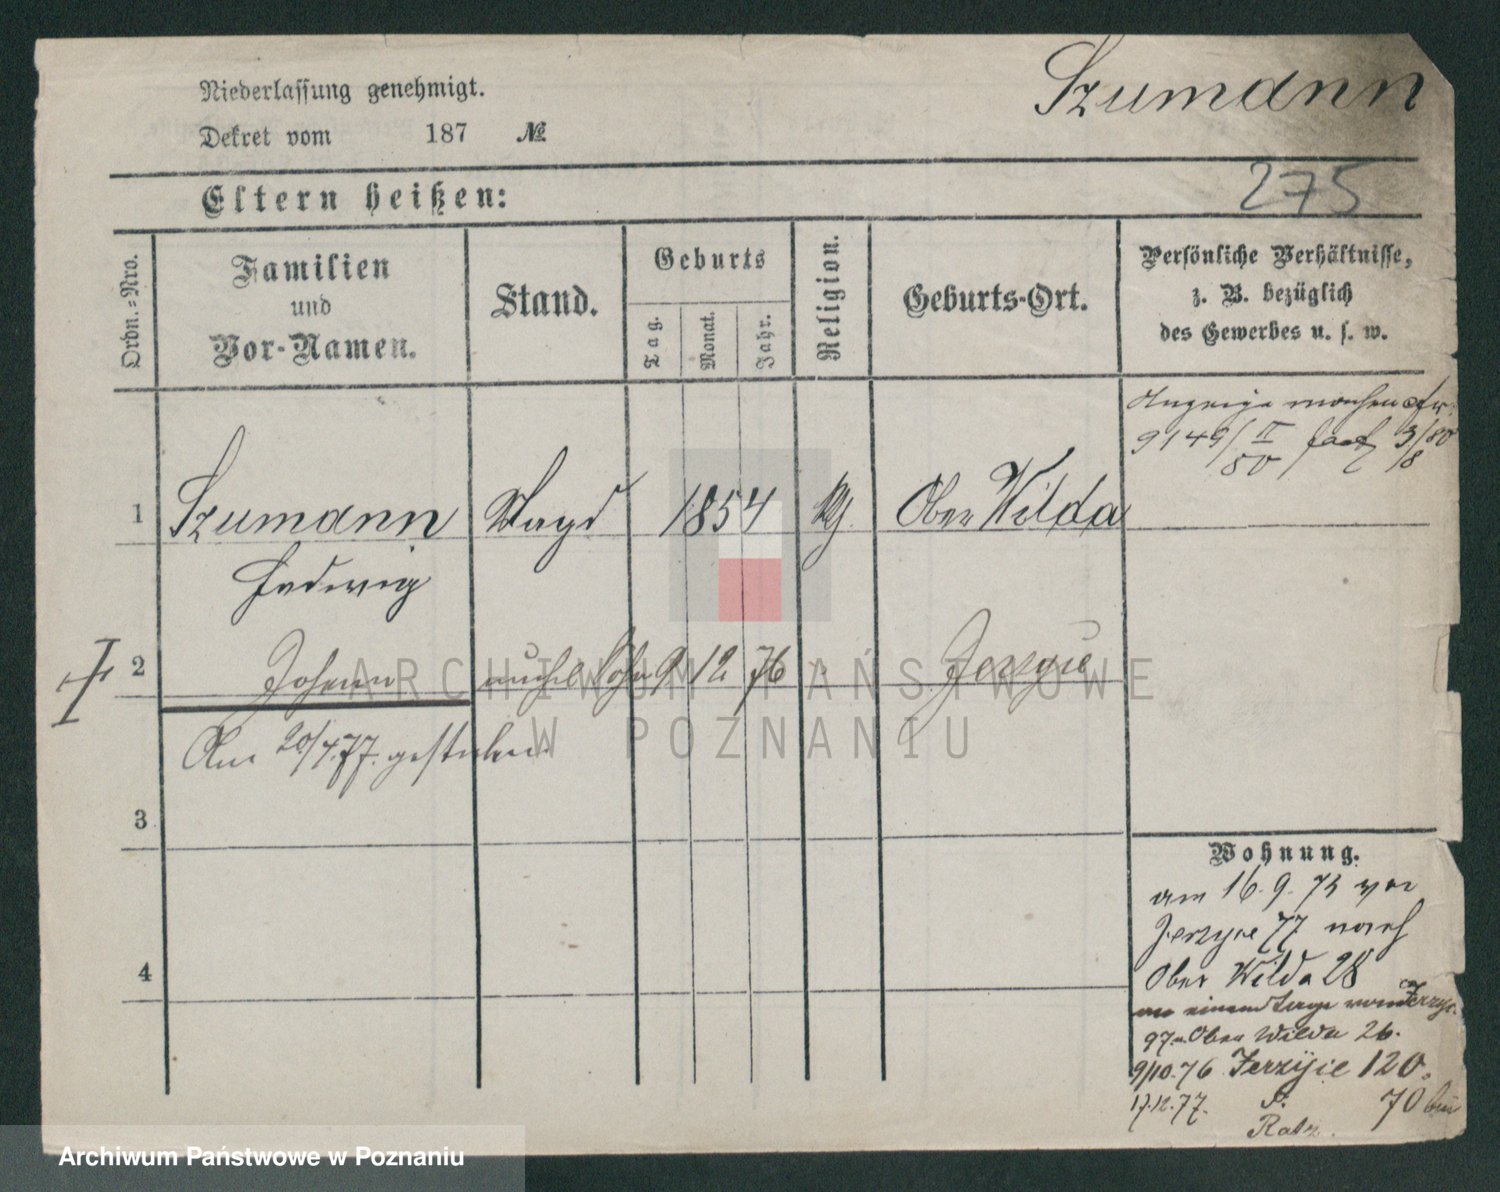 Niederlassung genehmigt.
Dekret vom 187 №
Szumann
275
Eltern heißen:
Ordn.-Nro.
Familien
und
Vor-Namen.
Stand.
Geburts
Tag.
Monat.
Jahr.
Religion.
Geburts-Ort.
Persönliche Verhältnisse,
z. B. bezüglich
des Gewerbes u. s. w.
Anzeige machen
9149/II 80 3/8 80
1 Szumann Magd 1854 Ober Wilda
Hedwig
2 Johann Sohn 9 12 76 Jerzyce
Am 20/4.77. gestorben
3
4
Wohnung.
am 16.9.75 von
Jerzyce 77 nach
Ober Wilda 28
Jerzyc.
97 Ober Wilda 26.
9/10.76 Jerzyce 120.
17.12.77. 70 bei
Ratz.
ARCHIWUM PAŃSTWOWE
W POZNANIU
Archiwum Państwowe w Poznaniu